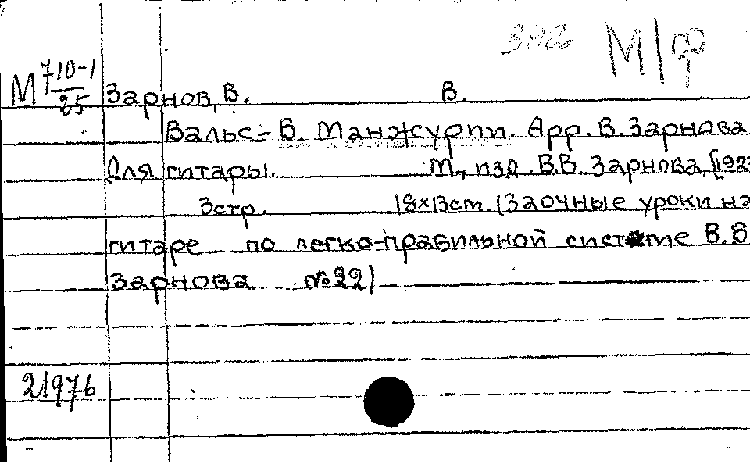 М|ф
М 710-1
25
Зарнов, В. В.
Вальс - В. Манжурпи. Арр. В. Зарнова
Для гитары. М., изд. В.В. Зарнова, [192
3 стр. 18×13 см. (Заочные уроки на
гитаре по легко-правильной системе В.В
Зарнова №22)
21976